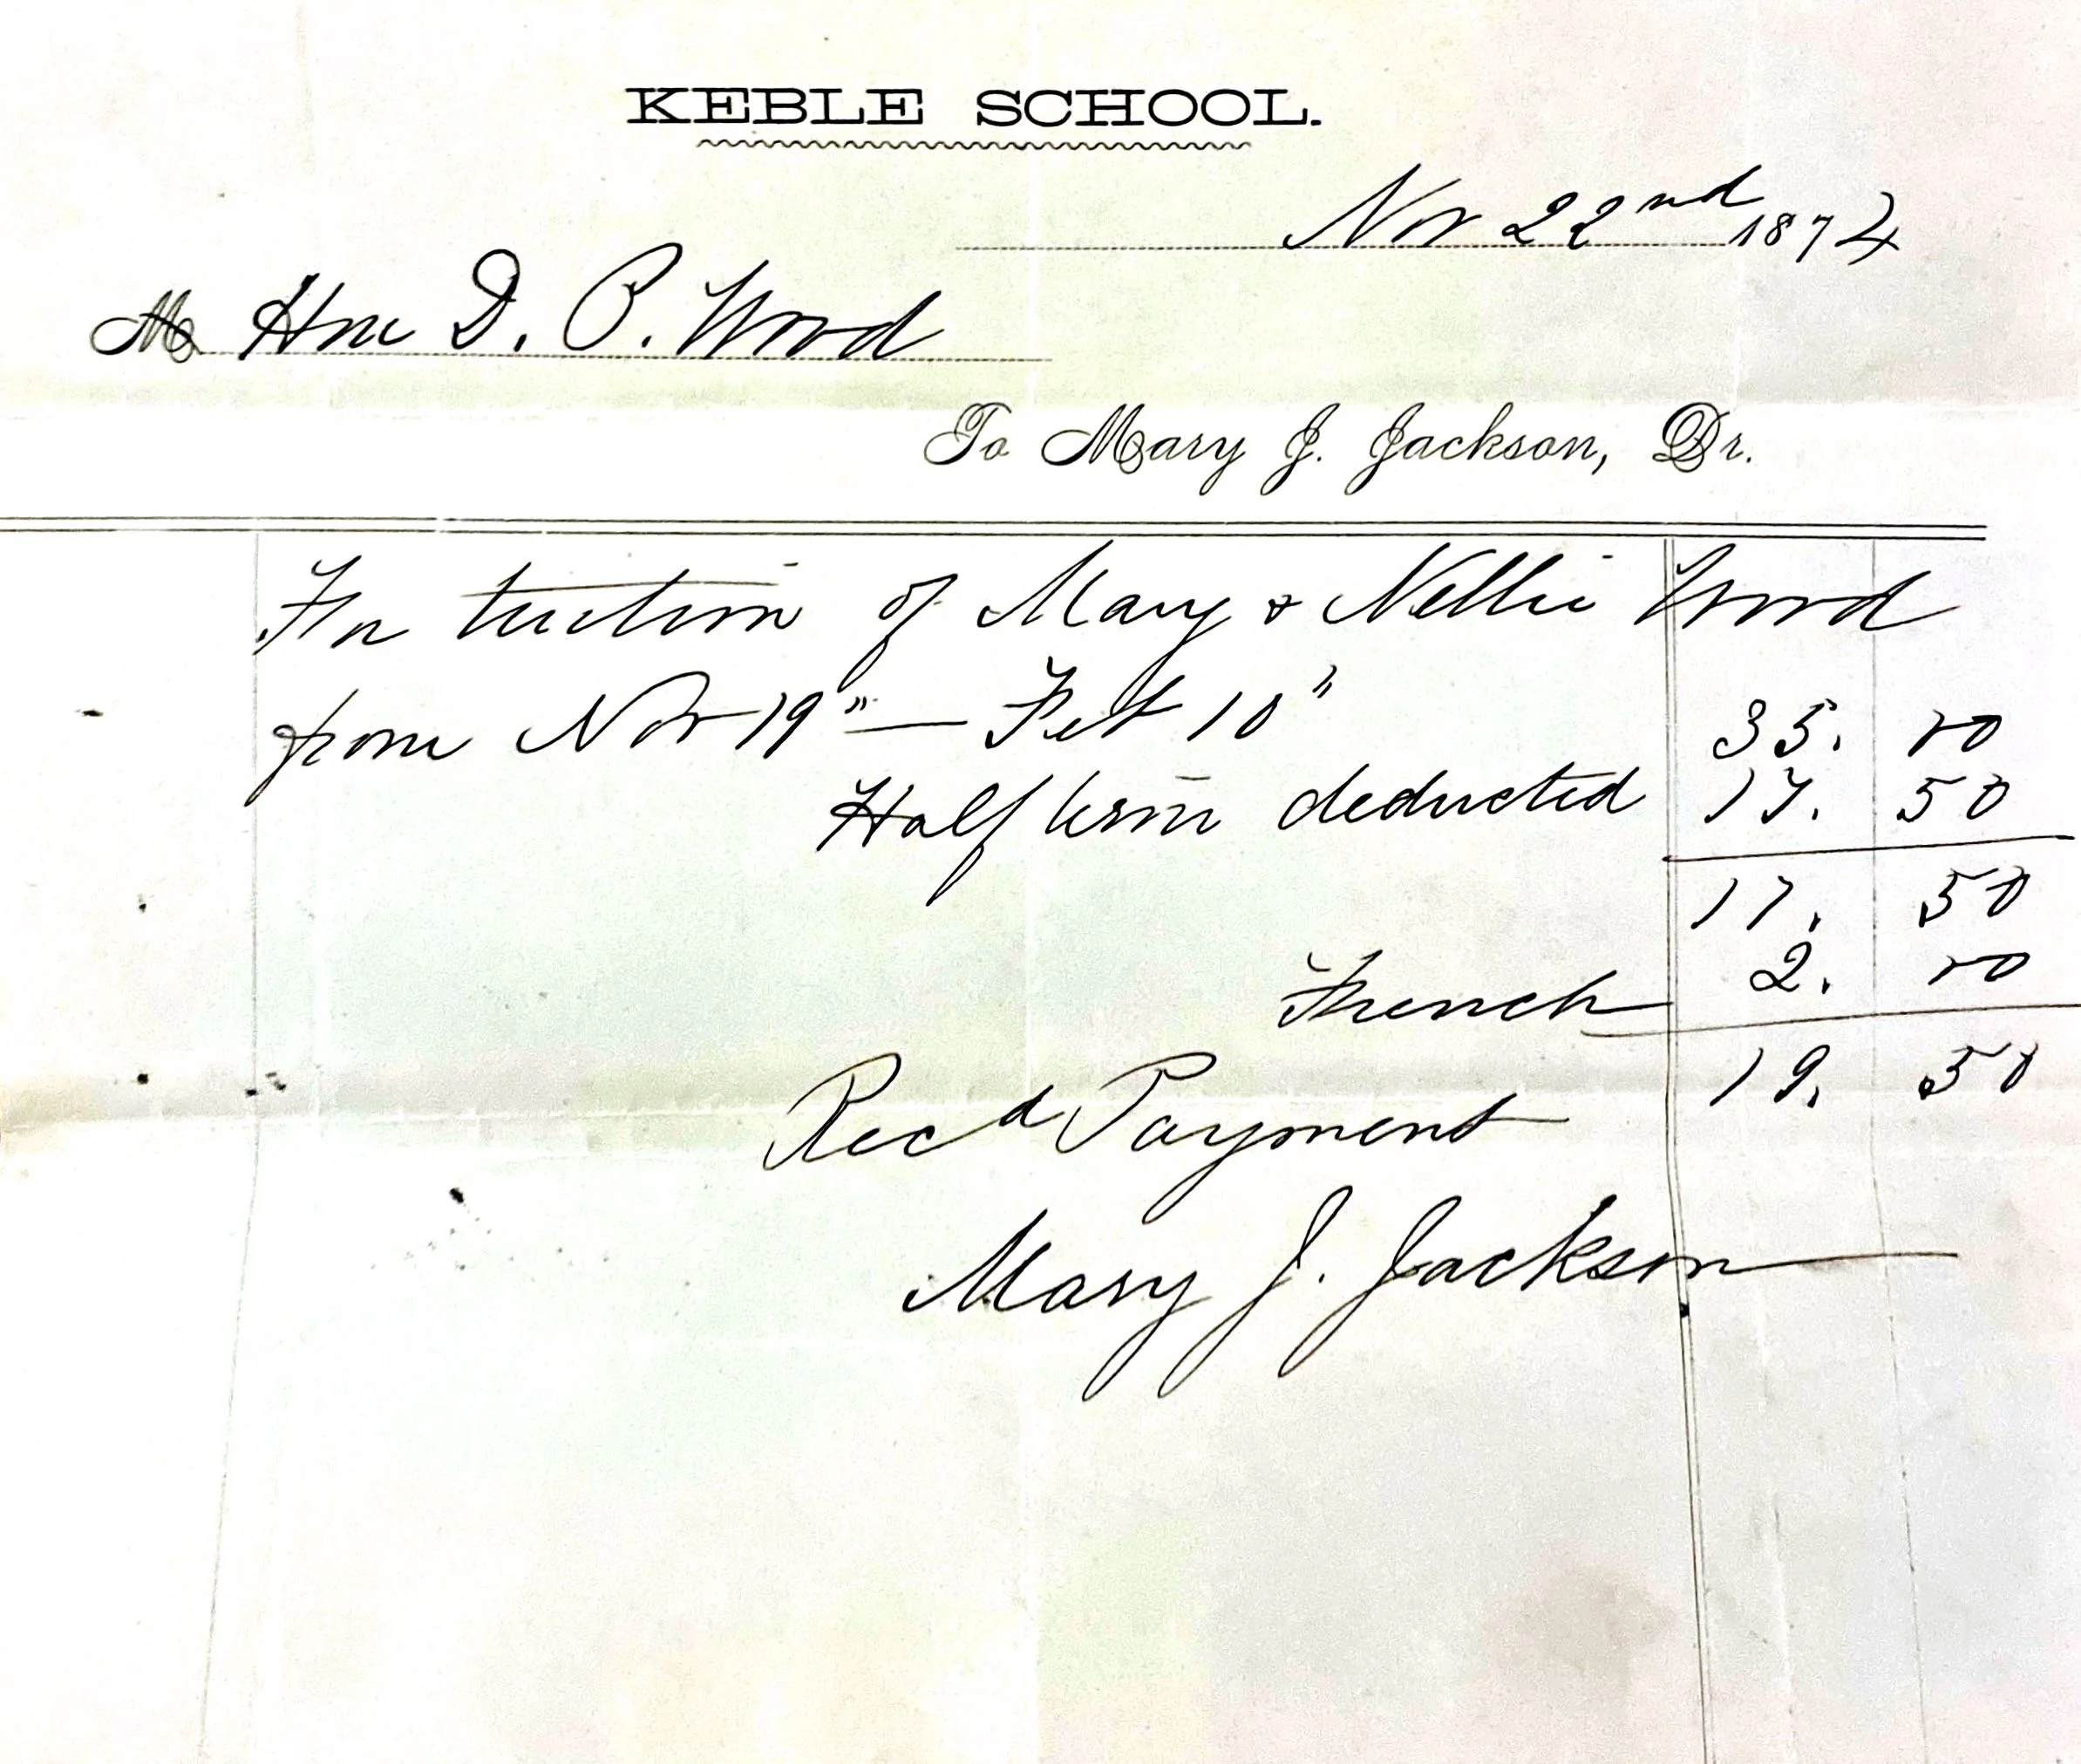 KEBLE SCHOOL.
Nov 22nd 1874
M Hon D. P. Wood
To Mary J. Jackson, Dr.
For tuition of Mary & Nellie Wood
from Nov 19" — Feb 10" 35. 00
Half term deducted 17. 50
17. 50
French 2. 00
19. 50
Recd Payment
Mary J. Jackson